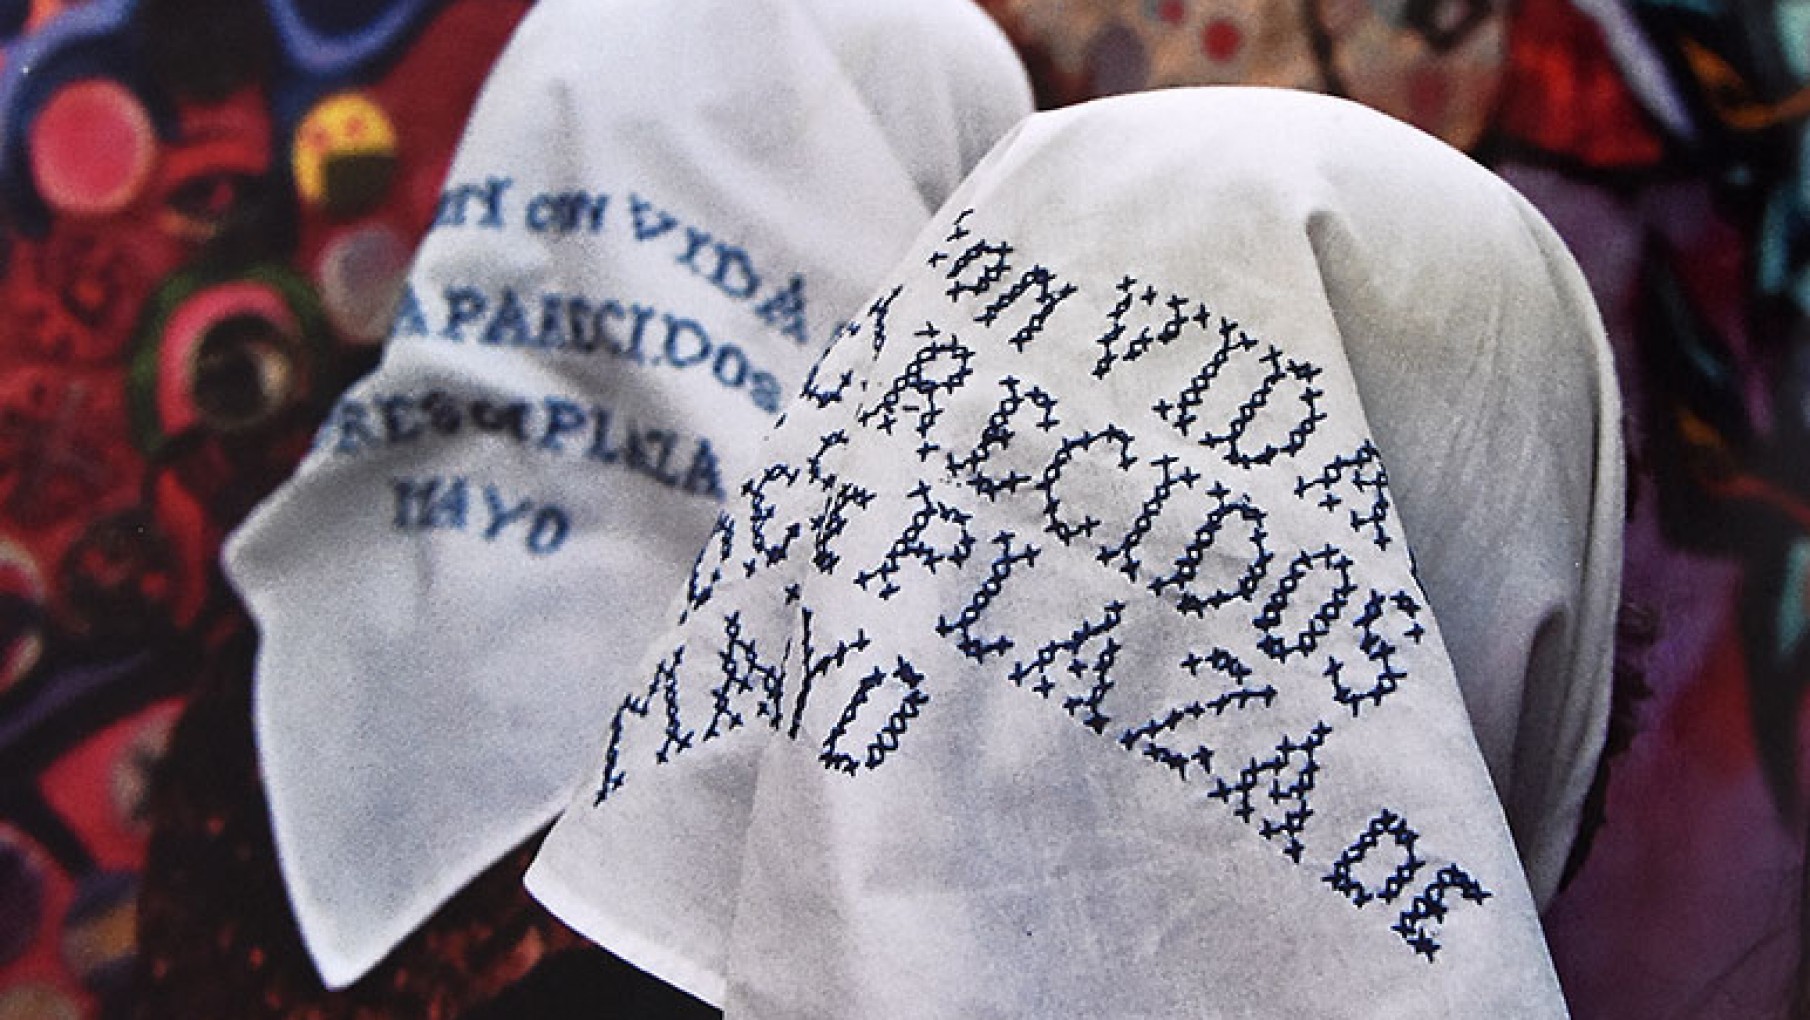 CON VIDA
APARECIDOS
PLAZA
MAYO
CON VIDA
ARECIDOS
PLAZA DE
MAYO